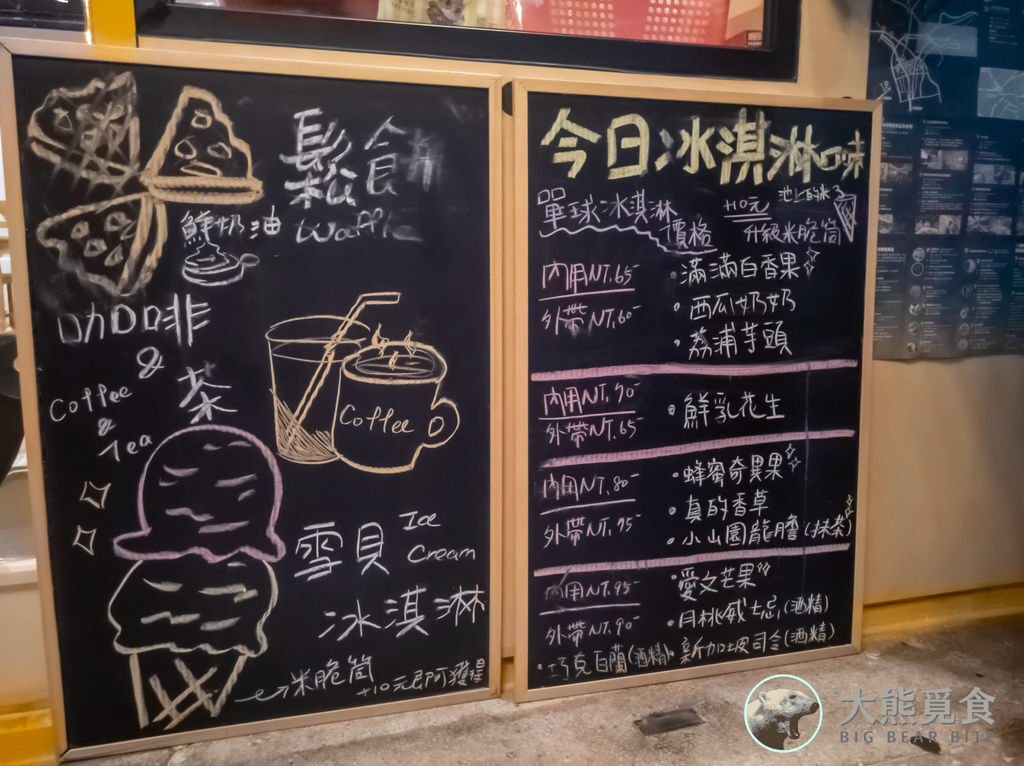 鬆餅
Waffle
鮮奶油
咖啡
&
茶
Coffee
&
Tea
Coffee
雪貝
Ice
Cream
冰淇淋
米脆筒
+10元即可獲得
今日冰淇淋口味
單球冰淇淋
價格
+10元
池上的米
升級米脆筒
內用NT.65
外帶NT.60
•滿滿百香果
•西瓜奶奶
•荔浦芋頭
內用NT.90
外帶NT.65
•鮮乳花生
內用NT.80
外帶NT.75
•蜂蜜奇異果
•真的香草
•小山園龍膽(抹茶)
內用NT.95
外帶NT.90
•愛文芒果
•月桃威士忌(酒精)
•巧克百蘭(酒精)
•新加坡司令(酒精)
大熊覓食
BIG BEAR BITE